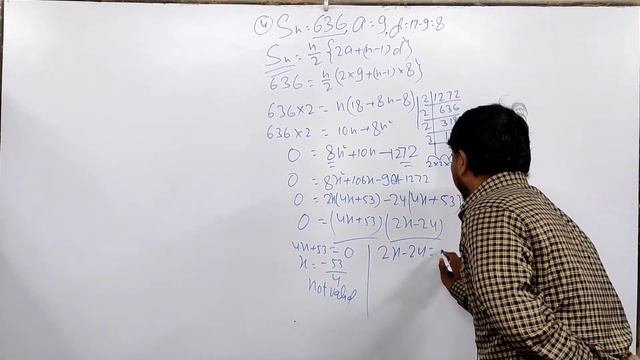 (4) Sn = 636, a = 9, d = 17-9 = 8
Sn = n/2 {2a+(n-1)d}
636 = n/2 (2×9+(n-1)×8}
636×2 = n(18+8n-8)
636×2 = 10n+8n²
0 = 8n²+10n-1272
0 = 8n²+106n-96n-1272
0 = 2n(4n+53)-24(4n+53)
0 = (4n+53)(2n-24)
4n+53=0
n = -53/4
not valid
2n-24=
2 1272
2 636
2 318
2